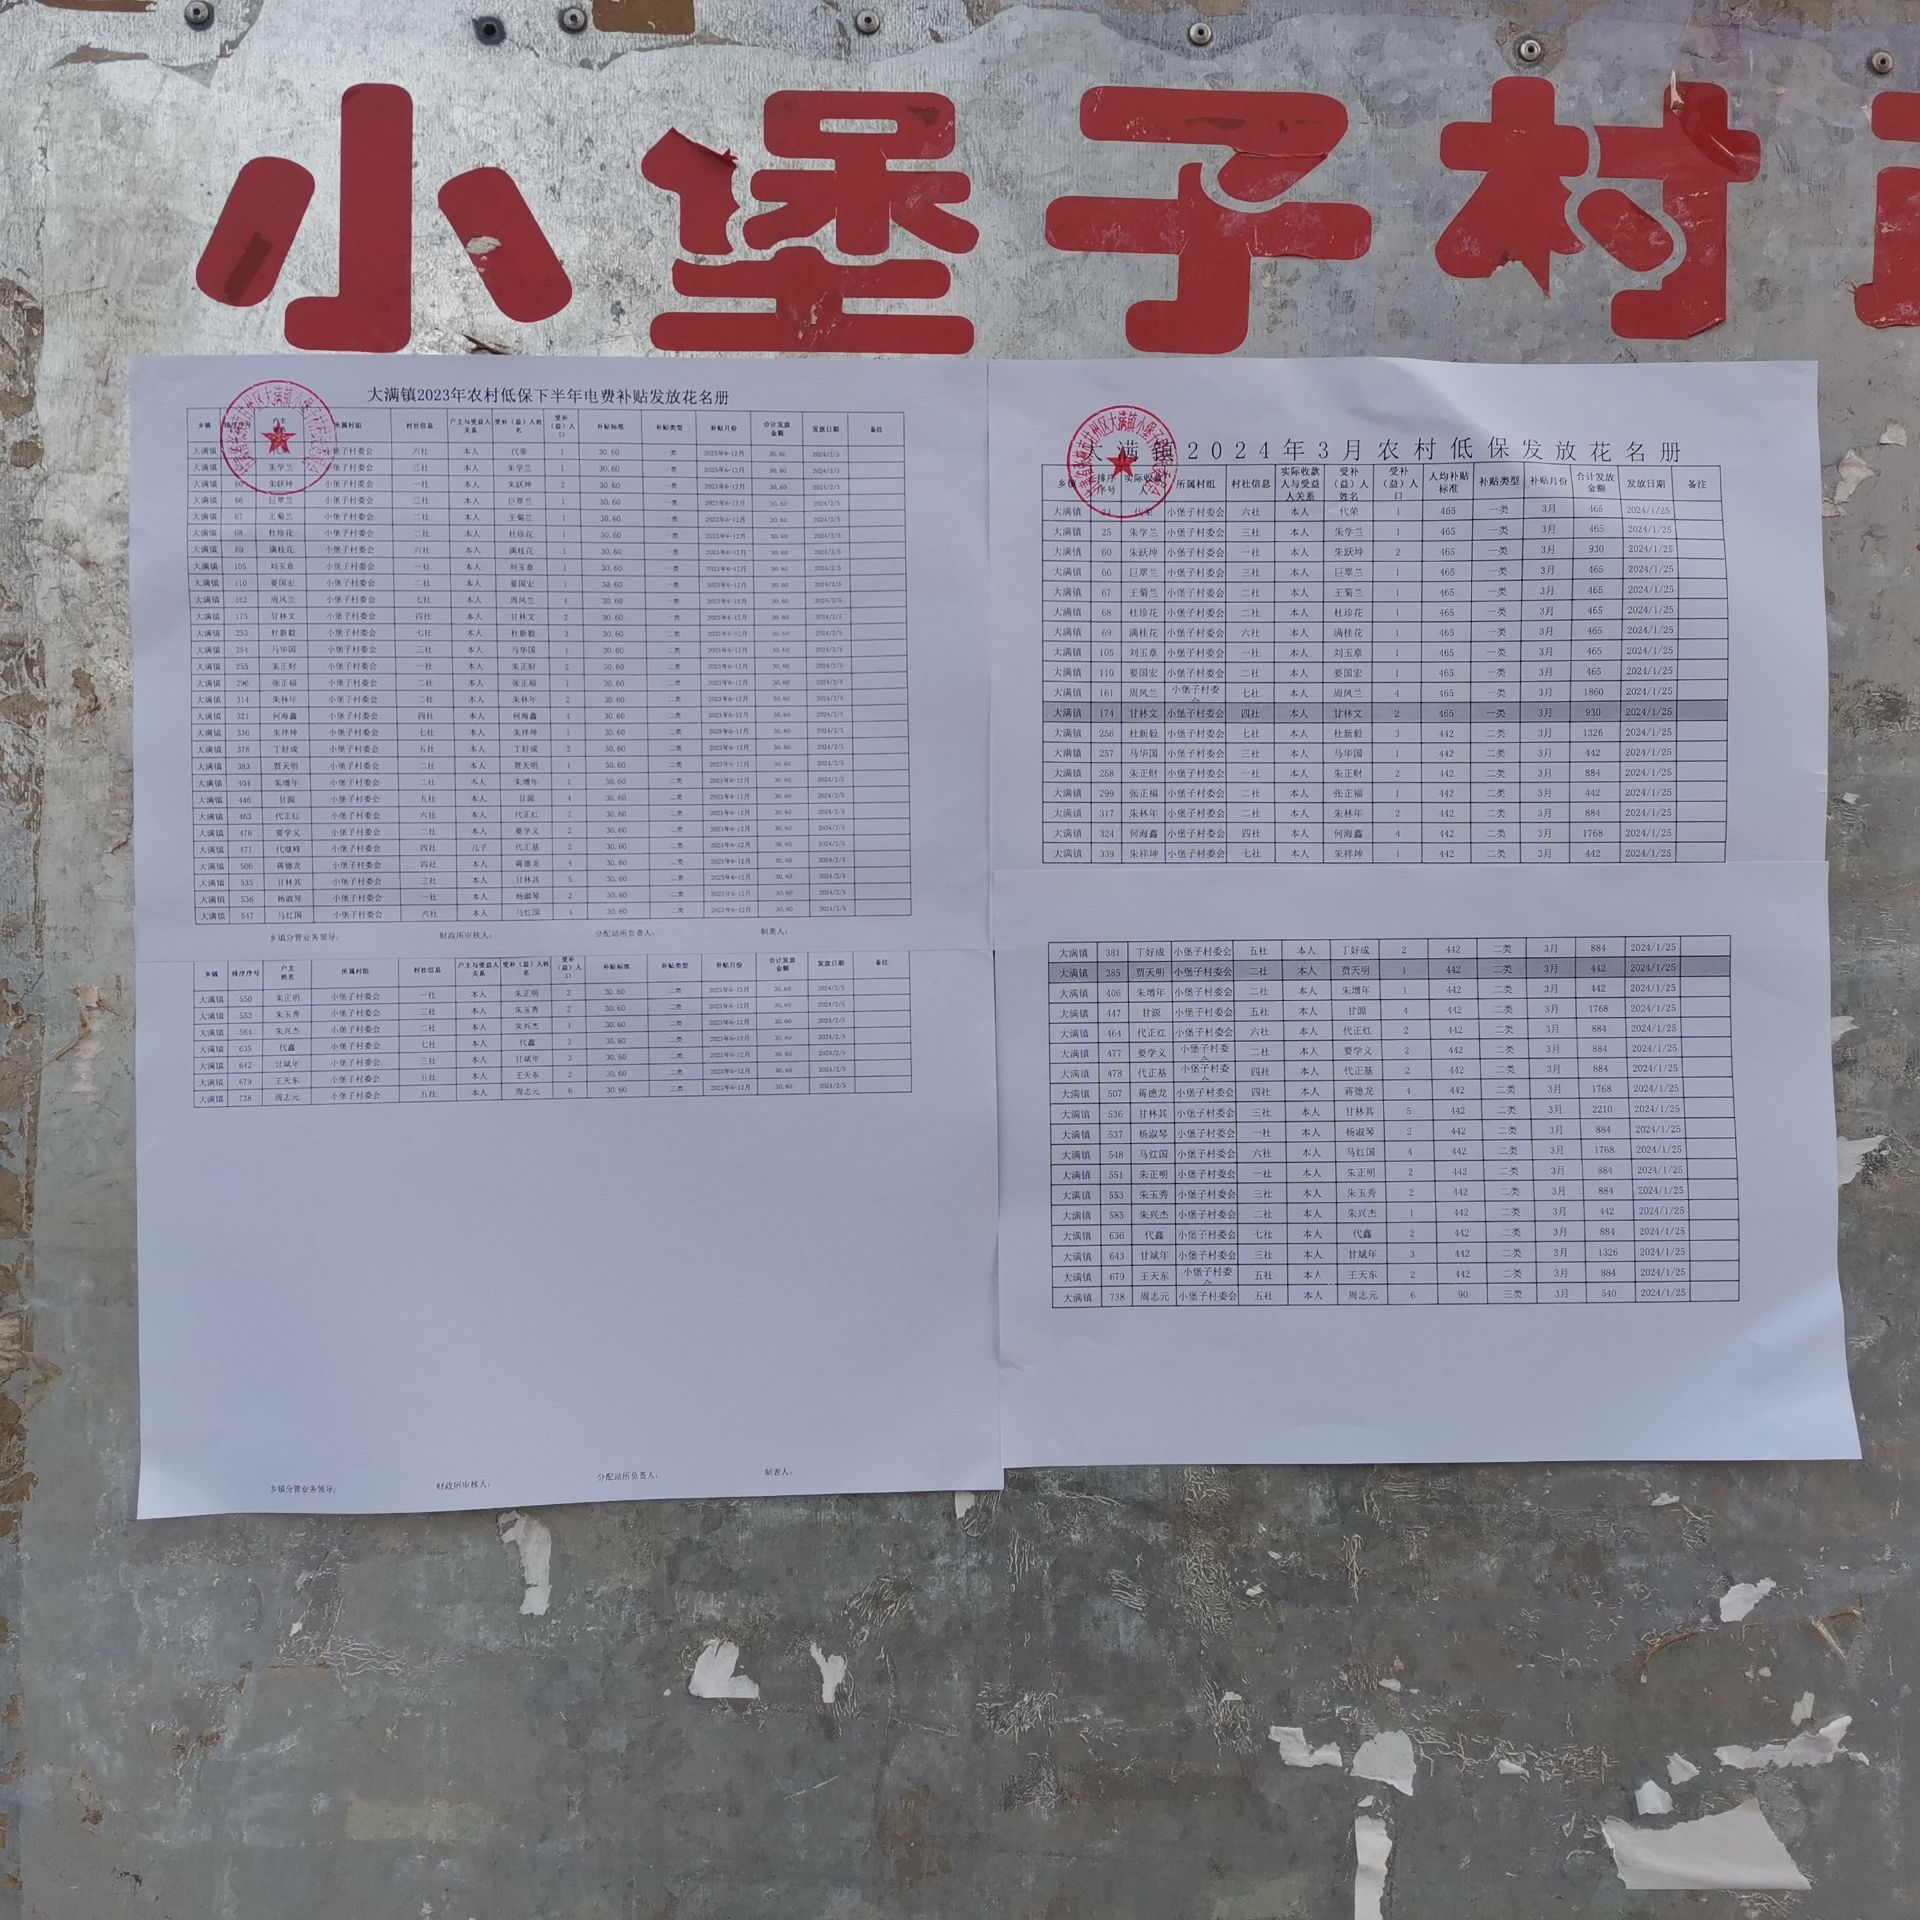 小堡子村
大满镇2023年农村低保下半年电费补贴发放花名册
乡镇 排序序号 户主 所属村组 村社信息 户主与受益人关系 受补（益）人姓名 受补（益）人口 补贴标准 补贴类型 补贴月份 合计发放金额 发放日期 备注
大满镇 小堡子村委会 六社 本人 代荣 1 30.60 一类 2023年6-12月 30.60 2024/2/5
大满镇 朱学兰 小堡子村委会 三社 本人 朱学兰 1 30.60 一类 2023年6-12月 30.60 2024/2/5
大满镇 60 朱跃坤 小堡子村委会 一社 本人 朱跃坤 2 30.60 一类 2023年6-12月 30.60 2024/2/5
大满镇 66 巨翠兰 小堡子村委会 三社 本人 巨翠兰 1 30.60 一类 2023年6-12月 30.60 2024/2/5
大满镇 67 王菊兰 小堡子村委会 二社 本人 王菊兰 1 30.60 一类 2023年6-12月 30.60 2024/2/5
大满镇 68 杜珍花 小堡子村委会 二社 本人 杜珍花 1 30.60 一类 2023年6-12月 30.60 2024/2/5
大满镇 69 满桂花 小堡子村委会 六社 本人 满桂花 1 30.60 一类 2023年6-12月 30.60 2024/2/5
大满镇 105 刘玉章 小堡子村委会 一社 本人 刘玉章 1 30.60 一类 2023年6-12月 30.60 2024/2/5
大满镇 110 要国宏 小堡子村委会 二社 本人 要国宏 1 30.60 一类 2023年6-12月 30.60 2024/2/5
大满镇 162 周凤兰 小堡子村委会 七社 本人 周凤兰 4 30.60 一类 2023年6-12月 30.60 2024/2/5
大满镇 175 甘林文 小堡子村委会 四社 本人 甘林文 2 30.60 一类 2023年6-12月 30.60 2024/2/5
大满镇 253 杜新毅 小堡子村委会 七社 本人 杜新毅 3 30.60 二类 2023年6-12月 30.60 2024/2/5
大满镇 254 马华国 小堡子村委会 三社 本人 马华国 1 30.60 二类 2023年6-12月 30.60 2024/2/5
大满镇 255 朱正财 小堡子村委会 一社 本人 朱正财 2 30.60 二类 2023年6-12月 30.60 2024/2/5
大满镇 296 张正福 小堡子村委会 二社 本人 张正福 1 30.60 二类 2023年6-12月 30.60 2024/2/5
大满镇 314 朱林年 小堡子村委会 二社 本人 朱林年 2 30.60 二类 2023年6-12月 30.60 2024/2/5
大满镇 321 何海鑫 小堡子村委会 四社 本人 何海鑫 4 30.60 二类 2023年6-12月 30.60 2024/2/5
大满镇 336 朱祥坤 小堡子村委会 七社 本人 朱祥坤 1 30.60 二类 2023年6-12月 30.60 2024/2/5
大满镇 378 丁好成 小堡子村委会 五社 本人 丁好成 2 30.60 二类 2023年6-12月 30.60 2024/2/5
大满镇 383 贾天明 小堡子村委会 二社 本人 贾天明 1 30.60 二类 2023年6-12月 30.60 2024/2/5
大满镇 404 朱增年 小堡子村委会 二社 本人 朱增年 1 30.60 二类 2023年6-12月 30.60 2024/2/5
大满镇 446 甘源 小堡子村委会 五社 本人 甘源 4 30.60 二类 2023年6-12月 30.60 2024/2/5
大满镇 463 代正红 小堡子村委会 六社 本人 代正红 2 30.60 二类 2023年6-12月 30.60 2024/2/5
大满镇 476 要学义 小堡子村委会 二社 本人 要学义 2 30.60 二类 2023年6-12月 30.60 2024/2/5
大满镇 477 代继峰 小堡子村委会 四社 儿子 代正基 2 30.60 二类 2023年6-12月 30.60 2024/2/5
大满镇 506 蒋德龙 小堡子村委会 四社 本人 蒋德龙 4 30.60 二类 2023年6-12月 30.60 2024/2/5
大满镇 535 甘林其 小堡子村委会 三社 本人 甘林其 5 30.60 二类 2023年6-12月 30.60 2024/2/5
大满镇 536 杨淑琴 小堡子村委会 一社 本人 杨淑琴 2 30.60 二类 2023年6-12月 30.60 2024/2/5
大满镇 547 马红国 小堡子村委会 六社 本人 马红国 4 30.60 二类 2023年6-12月 30.60 2024/2/5
乡镇分管业务领导： 财政所审核人： 分配站所负责人： 制表人：
乡镇 排序序号 户主姓名 所属村组 村社信息 户主与受益人关系 受补（益）人姓名 受补（益）人口 补贴标准 补贴类型 补贴月份 合计发放金额 发放日期 备注
大满镇 550 朱正明 小堡子村委会 一社 本人 朱正明 2 30.60 二类 2023年6-12月 30.60 2024/2/5
大满镇 552 朱玉秀 小堡子村委会 三社 本人 朱玉秀 2 30.60 二类 2023年6-12月 30.60 2024/2/5
大满镇 584 朱兴杰 小堡子村委会 二社 本人 朱兴杰 1 30.60 二类 2023年6-12月 30.60 2024/2/5
大满镇 635 代鑫 小堡子村委会 七社 本人 代鑫 2 30.60 二类 2023年6-12月 30.60 2024/2/5
大满镇 642 甘斌年 小堡子村委会 三社 本人 甘斌年 3 30.60 二类 2023年6-12月 30.60 2024/2/5
大满镇 679 王天东 小堡子村委会 五社 本人 王天东 2 30.60 二类 2023年6-12月 30.60 2024/2/5
大满镇 738 周志元 小堡子村委会 五社 本人 周志元 6 30.60 三类 2023年6-12月 30.60 2024/2/5
乡镇分管业务领导： 财政所审核人： 分配站所负责人： 制表人：
大满镇2024年3月农村低保发放花名册
乡镇 排序序号 实际收款人 所属村组 村社信息 实际收款人与受益人关系 受补（益）人姓名 受补（益）人口 人均补贴标准 补贴类型 补贴月份 合计发放金额 发放日期 备注
大满镇 24 代荣 小堡子村委会 六社 本人 代荣 1 465 一类 3月 465 2024/1/25
大满镇 25 朱学兰 小堡子村委会 三社 本人 朱学兰 1 465 一类 3月 465 2024/1/25
大满镇 60 朱跃坤 小堡子村委会 一社 本人 朱跃坤 2 465 一类 3月 930 2024/1/25
大满镇 66 巨翠兰 小堡子村委会 三社 本人 巨翠兰 1 465 一类 3月 465 2024/1/25
大满镇 67 王菊兰 小堡子村委会 二社 本人 王菊兰 1 465 一类 3月 465 2024/1/25
大满镇 68 杜珍花 小堡子村委会 二社 本人 杜珍花 1 465 一类 3月 465 2024/1/25
大满镇 69 满桂花 小堡子村委会 六社 本人 满桂花 1 465 一类 3月 465 2024/1/25
大满镇 105 刘玉章 小堡子村委会 一社 本人 刘玉章 1 465 一类 3月 465 2024/1/25
大满镇 110 要国宏 小堡子村委会 二社 本人 要国宏 1 465 一类 3月 465 2024/1/25
大满镇 161 周凤兰 小堡子村委会 七社 本人 周凤兰 4 465 一类 3月 1860 2024/1/25
大满镇 174 甘林文 小堡子村委会 四社 本人 甘林文 2 465 一类 3月 930 2024/1/25
大满镇 256 杜新毅 小堡子村委会 七社 本人 杜新毅 3 442 二类 3月 1326 2024/1/25
大满镇 257 马华国 小堡子村委会 三社 本人 马华国 1 442 二类 3月 442 2024/1/25
大满镇 258 朱正财 小堡子村委会 一社 本人 朱正财 2 442 二类 3月 884 2024/1/25
大满镇 299 张正福 小堡子村委会 二社 本人 张正福 1 442 二类 3月 442 2024/1/25
大满镇 317 朱林年 小堡子村委会 二社 本人 朱林年 2 442 二类 3月 884 2024/1/25
大满镇 324 何海鑫 小堡子村委会 四社 本人 何海鑫 4 442 二类 3月 1768 2024/1/25
大满镇 339 朱祥坤 小堡子村委会 七社 本人 朱祥坤 1 442 二类 3月 442 2024/1/25
大满镇 381 丁好成 小堡子村委会 五社 本人 丁好成 2 442 二类 3月 884 2024/1/25
大满镇 385 贾天明 小堡子村委会 二社 本人 贾天明 1 442 二类 3月 442 2024/1/25
大满镇 406 朱增年 小堡子村委会 二社 本人 朱增年 1 442 二类 3月 442 2024/1/25
大满镇 447 甘源 小堡子村委会 五社 本人 甘源 4 442 二类 3月 1768 2024/1/25
大满镇 464 代正红 小堡子村委会 六社 本人 代正红 2 442 二类 3月 884 2024/1/25
大满镇 477 要学义 小堡子村委会 二社 本人 要学义 2 442 二类 3月 884 2024/1/25
大满镇 478 代正基 小堡子村委会 四社 本人 代正基 2 442 二类 3月 884 2024/1/25
大满镇 507 蒋德龙 小堡子村委会 四社 本人 蒋德龙 4 442 二类 3月 1768 2024/1/25
大满镇 536 甘林其 小堡子村委会 三社 本人 甘林其 5 442 二类 3月 2210 2024/1/25
大满镇 537 杨淑琴 小堡子村委会 一社 本人 杨淑琴 2 442 二类 3月 884 2024/1/25
大满镇 548 马红国 小堡子村委会 六社 本人 马红国 4 442 二类 3月 1768 2024/1/25
大满镇 551 朱正明 小堡子村委会 一社 本人 朱正明 2 442 二类 3月 884 2024/1/25
大满镇 553 朱玉秀 小堡子村委会 三社 本人 朱玉秀 2 442 二类 3月 884 2024/1/25
大满镇 585 朱兴杰 小堡子村委会 二社 本人 朱兴杰 1 442 二类 3月 442 2024/1/25
大满镇 636 代鑫 小堡子村委会 七社 本人 代鑫 2 442 二类 3月 884 2024/1/25
大满镇 643 甘斌年 小堡子村委会 三社 本人 甘斌年 3 442 二类 3月 1326 2024/1/25
大满镇 679 王天东 小堡子村委会 五社 本人 王天东 2 442 二类 3月 884 2024/1/25
大满镇 738 周志元 小堡子村委会 五社 本人 周志元 6 90 三类 3月 540 2024/1/25